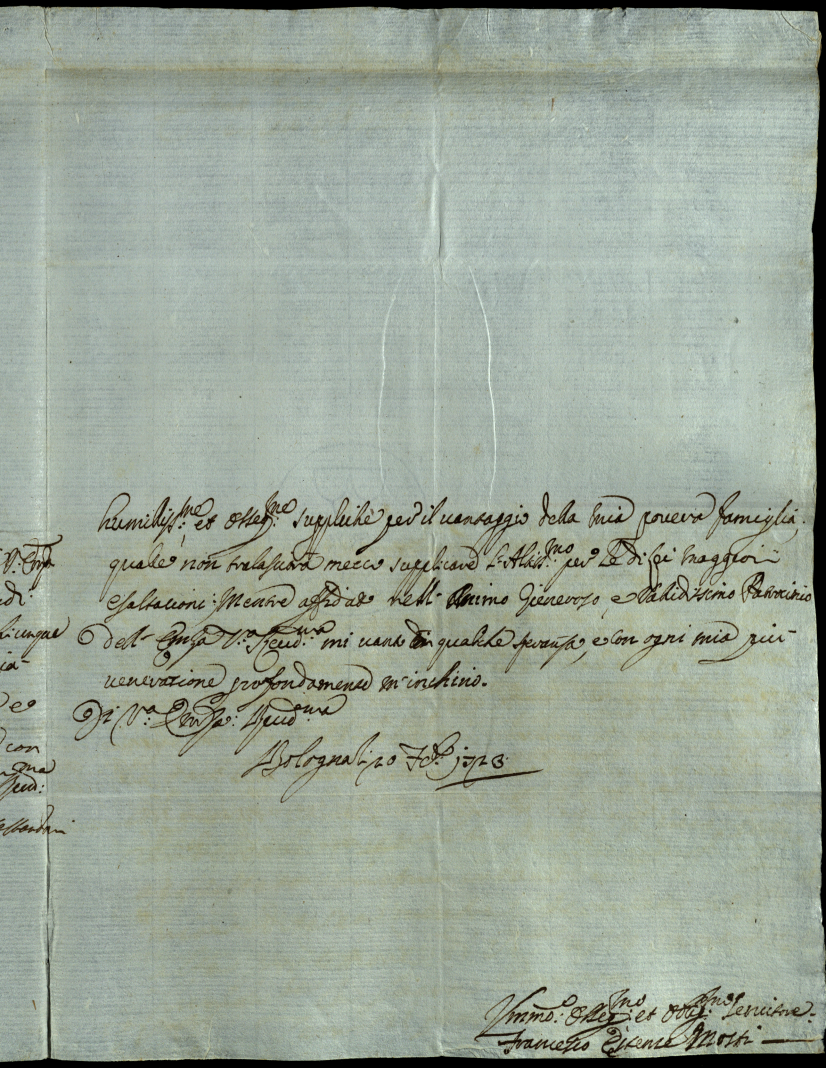 humiliss:me et osseq:me suppliche per il vantaggio della mia povera famiglia,
quale non tralascerà meco supplicare l'Altiss:mo per le di Lei maggiori
esaltacioni. Mentre affidato nell'Animo Gieneroso, e Validissimo Patrocinio
dell'Emza Va Reved:ma mi vanto di qualche speransa, e con ogni mia più
veneracione profondamente m'inchino.
Di Va Emza: Reved:ma
Bologna li 20 Feb: 1723
Ummo: Osseq:mo et Obbg:mo Servitore
Francesco Estense Mosti
V: Emza
di:
con
Reved:ma